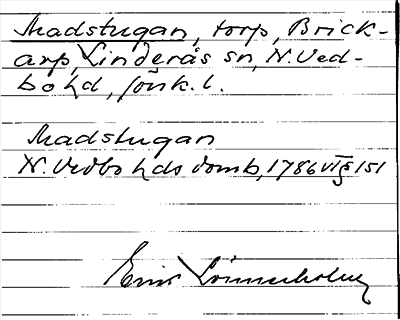 Madstugan, torp, Brick-
arp, Linderås sn, N. Ved-
bo hd, Jönk. l.
Madstugan
N. Vedbo hds domb, 1786 VT § 151
Erik Lönnerholm